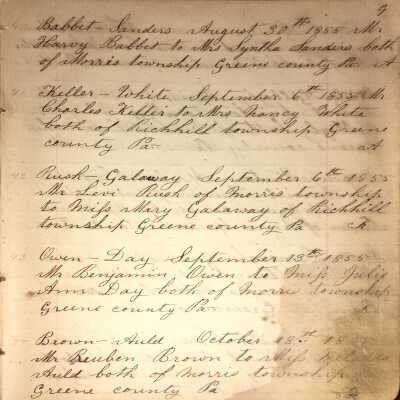 9
Babbet - Sanders August 30th 1855 Mr
Harvy Babbet to Mrs Syntha Sanders both
of Morris township Greene county Pa A
Keller - White September 6th 1855 Mr
Charles Keller to Mrs Nancy White
both of Richhill township Greene
county Pa A
42 Rush - Galaway September 6th 1855
Mr Levi Rush of Morris township
to Miss Mary Galaway of Richhill
township Greene county Pa A
43 Owen - Day September 13th 1855
Mr Benjamin Owen to Miss Julia
Ann Day both of Morris township
Greene county Pa A
Brown - Auld October 18st 18
Mr Reuben Brown to Miss
Auld both of Morris township
Greene county Pa